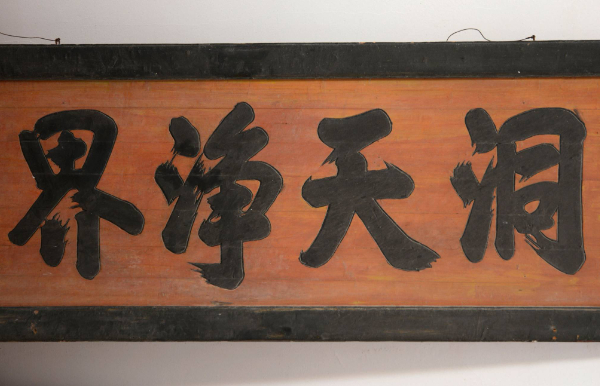 洞天淨界